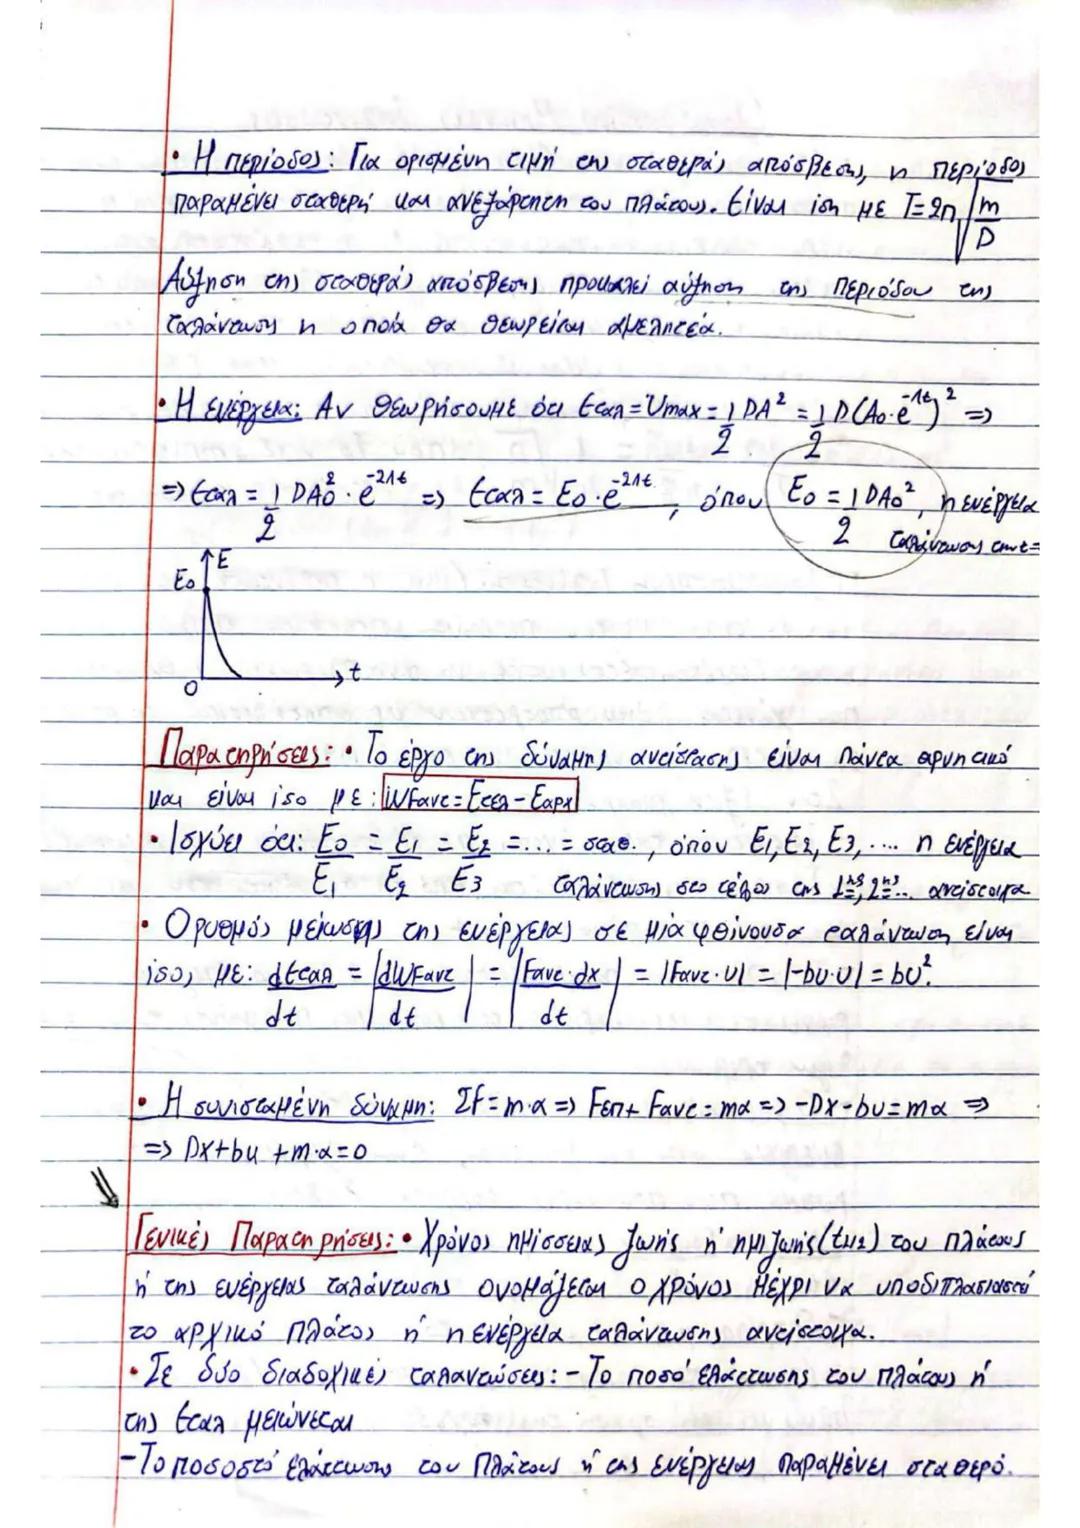 • Η περίοδος: Για ορισμένη τιμή της σταθεράς απόσβεσης, η περίοδος
παραμένει σταθερή και ανεξάρτητη του πλάτους. Είναι ίση με T=2π√(m/D)
Αύξηση της σταθεράς απόσβεσης προκαλεί αύξηση της περιόδου της
ταλάντωσης η οποία θα θεωρείται αμελητέα.
• Η ενέργεια: Αν θεωρήσουμε ότι Eταλ = Umax = 1/2 DA² = 1/2 D(A₀·e^-Λt)² =>
=> Eταλ = 1/2 DA₀² · e^-2Λt => Eταλ = E₀·e^-2Λt, όπου E₀ = 1/2 DA₀², η ενέργεια
ταλάντωσης την t=
E
E₀
t
0
Παρατηρήσεις: • Το έργο της δύναμης αντίστασης είναι πάντα αρνητικό
και είναι ίσο με: WFαντ = Eτελ - Eαρχ
• Ισχύει ότι: E₀/E₁ = E₁/E₂ = E₂/E₃ = ... = σταθ., όπου E₁, E₂, E₃, .... η ενέργεια
ταλάντωσης στο τέλος της 1ης, 2ης... αντίστοιχα
• Ο ρυθμός μείωσης της ενέργειας σε μία φθίνουσα ταλάντωση είναι
ίσος με: dEταλ/dt = |dWFαντ/dt| = |Fαντ·dx/dt| = |Fαντ·υ| = |-bυ·υ| = bυ².
• Η συνισταμένη δύναμη: ΣF = m·α => Fεπ + Fαντ = mα => -Dx-bυ = mα =>
=> Dx+bυ+m·α=0
Γενικές Παρατηρήσεις: • Χρόνος ημίσσειας ζωής ή ημιζωής (t1/2) του πλάτους
ή της ενέργειας ταλάντωσης ονομάζεται ο χρόνος μέχρι να υποδιπλασιαστεί
το αρχικό πλάτος ή η ενέργεια ταλάντωσης αντίστοιχα.
• Σε δύο διαδοχικές ταλαντώσεις: - Το ποσό ελάττωσης του πλάτους ή
της Eταλ μειώνεται
- Το ποσοστό ελάττωσης του πλάτους ή της ενέργειας παραμένει σταθερό.